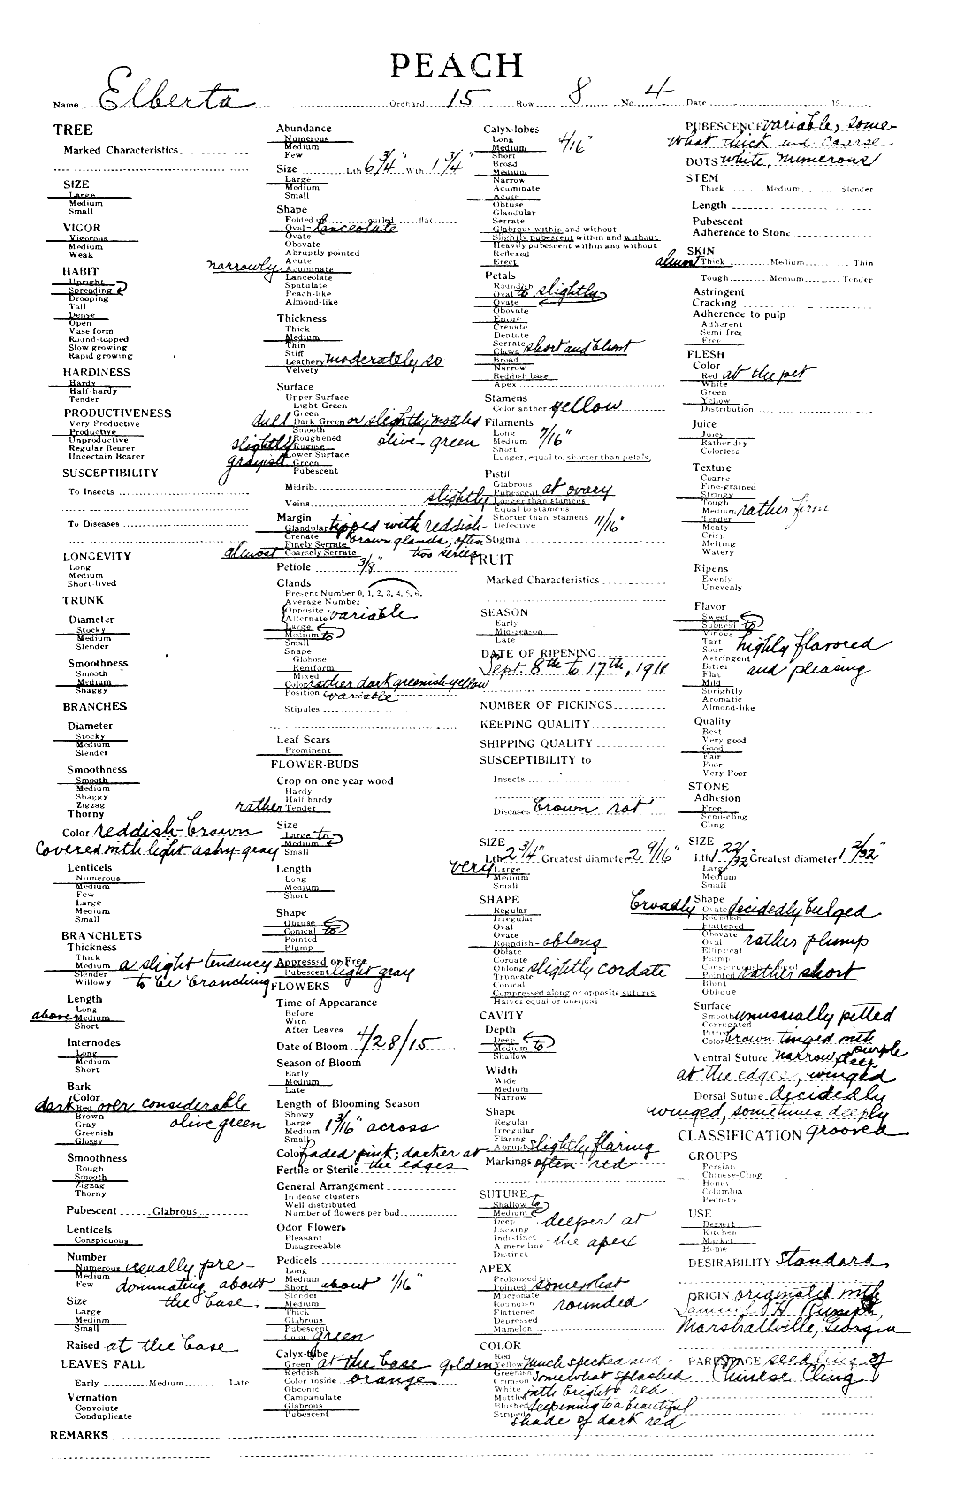 PEACH
Name Elberta Orchard 15 Row 8 No. 4 Date 19
TREE
Marked Characteristics
SIZE
Large
Medium
Small
VIGOR
Vigorous
Medium
Weak
HABIT
Upright
Spreading
Drooping
Tall
Dense
Open
Vase form
Round-topped
Slow growing
Rapid growing
HARDINESS
Hardy
Half-hardy
Tender
PRODUCTIVENESS
Very Productive
Productive
Unproductive
Regular Bearer
Uncertain Bearer
SUSCEPTIBILITY
To Insects
To Diseases
LONGEVITY
Long
Medium
Short-lived
TRUNK
Diameter
Stocky
Medium
Slender
Smoothness
Smooth
Medium
Shaggy
BRANCHES
Diameter
Stocky
Medium
Slender
Smoothness
Smooth
Medium
Shaggy
Zigzag
Thorny
Color reddish-brown
covered with light ashy-gray
Lenticels
Numerous
Medium
Few
Large
Medium
Small
BRANCHLETS
Thickness
Thick
Medium a slight tendency
Slender to be branching
Willowy
Length
Long
above Medium
Short
Internodes
Long
Medium
Short
Bark
Color
dark Red over considerable
Brown olive green
Gray
Greenish
Glossy
Smoothness
Rough
Smooth
Zigzag
Thorny
Pubescent Glabrous
Lenticels
Conspicuous
Number
Numerous usually pre-
Medium dominating about
Few the base
Size
Large
Medium
Small
Raised at the base
LEAVES FALL
Early Medium Late
Vernation
Convolute
Conduplicate
REMARKS
Abundance
Numerous
Medium
Few
Size Lth 6 3/4" Wth 1 3/4"
Large
Medium
Small
Shape
Folded curled flat
Oval-lanceolate
Ovate
Obovate
Abruptly pointed
Acute
narrowly Acuminate
Lanceolate
Spatulate
Peach-like
Almond-like
Thickness
Thick
Medium
Thin
Stiff
Leathery moderately so
Velvety
Surface
Upper Surface
Light Green
Green
dull Dark Green or slightly mottled
Smooth olive-green
slightly Roughened
Rugose
grayish Lower Surface
Green
Pubescent
Midrib
Veins
Margin
Glandular tipped with reddish-
Crenate brown glands, often
Finely Serrate two series
almost Coarsely Serrate
Petiole 3/8"
Glands
Present Number 0, 1, 2, 3, 4, 5, 6,
Average Number
Opposite
Alternate variable
Large
Medium to
Small
Shape
Globose
Reniform
Mixed
Color rather dark greenish-yellow
Position variable
Stipules
Leaf Scars
Prominent
FLOWER-BUDS
Crop on one year wood
Hardy
Half hardy
rather Tender
Size
Large to
Medium
Small
Length
Long
Medium
Short
Shape
Obtuse
Conical to
Pointed
Plump
Appressed or Free
Pubescent light gray
FLOWERS
Time of Appearance
Before
With
After Leaves
Date of Bloom 4/28/15
Season of Bloom
Early
Medium
Late
Length of Blooming Season
Showy
Large
Medium 1 3/16" across
Small
Color faded pink; darker at
Fertile or Sterile the edges
General Arrangement
In dense clusters
Well distributed
Number of flowers per bud
Odor Flowers
Pleasant
Disagreeable
Pedicels
Long
Medium
Short about 1/16"
Slender
Medium
Thick
Glabrous
Pubescent
Color green
Calyx-tube
Green at the base
Reddish
Color inside orange
Obconic
Campanulate
Glabrous
Pubescent
Calyx-lobes
Long 4/16"
Medium
Short
Broad
Medium
Narrow
Acuminate
Acute
Obtuse
Glandular
Serrate
Glabrous within and without
Slightly pubescent within and without
Heavily pubescent within and without
Reflexed
Erect
Petals
Roundish
Oval to slightly
Ovate
Obovate
Entire
Crenate
Dentate
Serrate
Claws short and blunt
Broad
Narrow
Reddish base
Apex
Stamens
Color anther yellow
Filaments
Long
Medium 7/16"
Short
Longer, equal to, shorter than petals
Pistil
Glabrous
Pubescent at ovary
slightly Longer than stamens
Equal to stamens
Shorter than stamens 11/16"
Defective
Stigma
FRUIT
Marked Characteristics
SEASON
Early
Mid-season
Late
DATE OF RIPENING
Sept. 8th to 17th, 1911
NUMBER OF PICKINGS
KEEPING QUALITY
SHIPPING QUALITY
SUSCEPTIBILITY to
Insects
Diseases brown rot
SIZE
Lth 2 3/4" Greatest diameter 2 9/16"
very Large
Medium
Small
SHAPE
Regular
Irregular
Oval
Ovate
Roundish-oblong
Oblate
Cordate
Oblong slightly cordate
Truncate
Conical
Compressed along or opposite sutures
Halves equal or unequal
CAVITY
Depth
Deep
Medium to
Shallow
Width
Wide
Medium
Narrow
Shape
Regular
Irregular
Flaring
Abrupt slightly flaring
Markings often red
SUTURE
Shallow to
Medium
Deep deeper at
Lacking
Indistinct the apex
A mere line
Distinct
APEX
Prolonged
Pointed somewhat
Mucronate
Roundish rounded
Flattened
Depressed
Mamelon
COLOR
Red
golden Yellow much specked and
Greenish somewhat splashed
Crimson
White with bright red
Mottled
Blushed deepening to a beautiful
Striped shade of dark red
PUBESCENCE variable, some-
what thick and coarse
DOTS white, numerous
STEM
Thick Medium Slender
Length
Pubescent
Adherence to Stone
SKIN
almost Thick Medium Thin
Tough Medium Tender
Astringent
Cracking
Adherence to pulp
Adherent
Semi free
Free
FLESH
Color
Red at the pit
White
Green
Yellow
Distribution
Juice
Juicy
Rather dry
Colorless
Texture
Coarse
Fine-grained
Stringy
Tough
Medium rather firm
Tender
Meaty
Crisp
Melting
Watery
Ripens
Evenly
Unevenly
Flavor
Sweet
Subacid to
Vinous
Tart highly flavored
Sour
Astringent and pleasing
Bitter
Flat
Mild
Sprightly
Aromatic
Almond-like
Quality
Best
Very good
Good
Fair
Poor
Very Poor
STONE
Adhesion
Free
Semi-cling
Cling
SIZE
Lth 1 22/32 Greatest diameter 1 2/32"
Large
Medium
Small
Shape
broadly Ovate decidedly bulged
Roundish
Flattened
Obovate
Oval rather plump
Elliptical
Plump
Pointed rather short
Blunt
Oblique
Surface
Smooth unusually pitted
Corrugated
Pitted
Color brown tinged with purple
Ventral Suture narrow, deep
at the edges, winged
Dorsal Suture decidedly
winged, sometimes deeply
grooved
CLASSIFICATION
GROUPS
Persian
Chinese-Cling
Honey
Columbia
Peento
USE
Dessert
Kitchen
Market
Home
DESIRABILITY Standard
ORIGIN originated with
Samuel H. Rumph,
Marshallville, Georgia
PARENTAGE seedling of
Chinese Cling